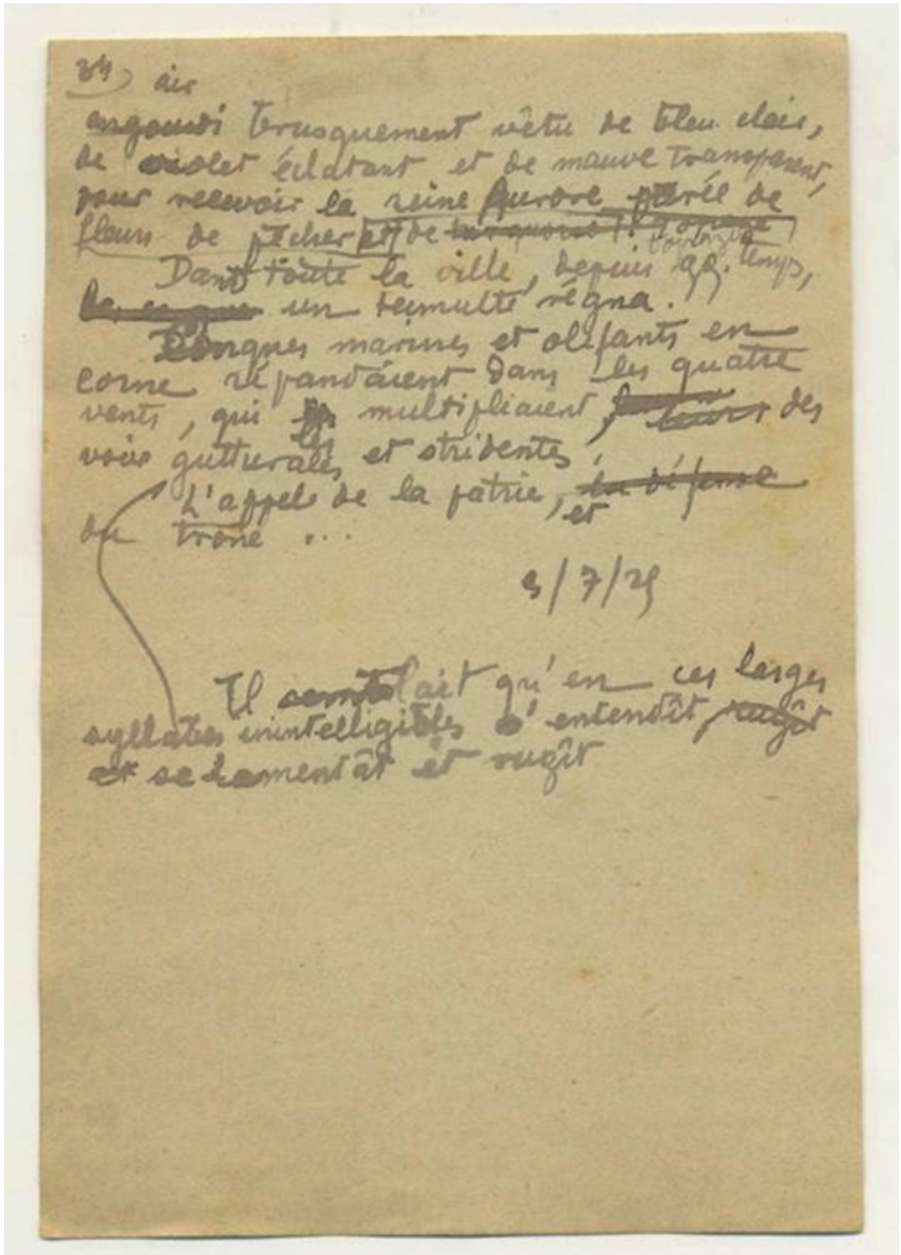 34) air
engourdi brusquement vêtu de bleu clair,
de violet éclatant et de mauve transparent,
pour recevoir la reine Aurore parée de
fleurs de pêcher et de turquoise !
Dans toute la ville, depuis qq. temps,
un tumulte régna.
Conques marines et olifants en
corne répandaient dans les quatre
vents, qui les multipliaient, leurs des
voix gutturales et stridentes,
L'appel de la patrie, la défense
et
du trône ...
3/7/25
Il semblait qu'en ces larges
syllabes inintelligibles s'entendît, rugît
et se lamentât et rugît